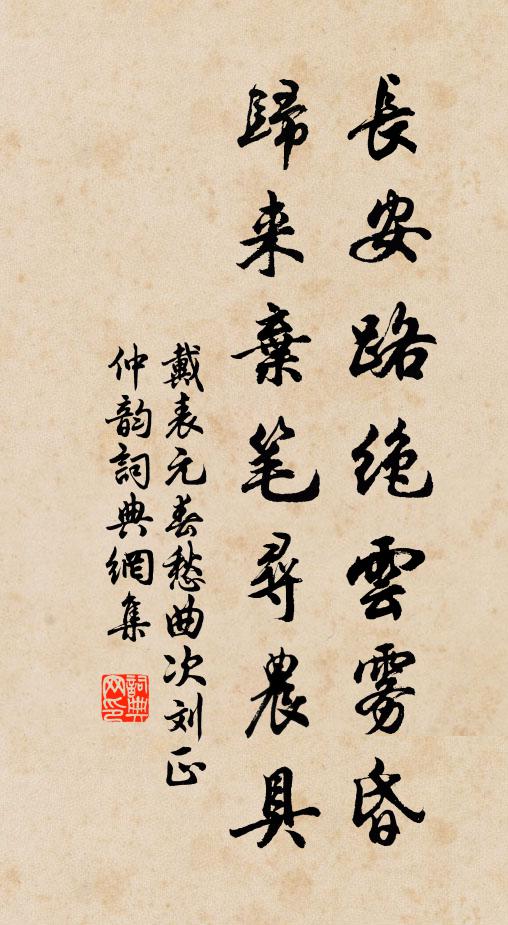 長安路绝雲雾昏
歸来棄笔尋農具
戴表元春愁曲次刘正
仲韵詞典網集
詞典网印